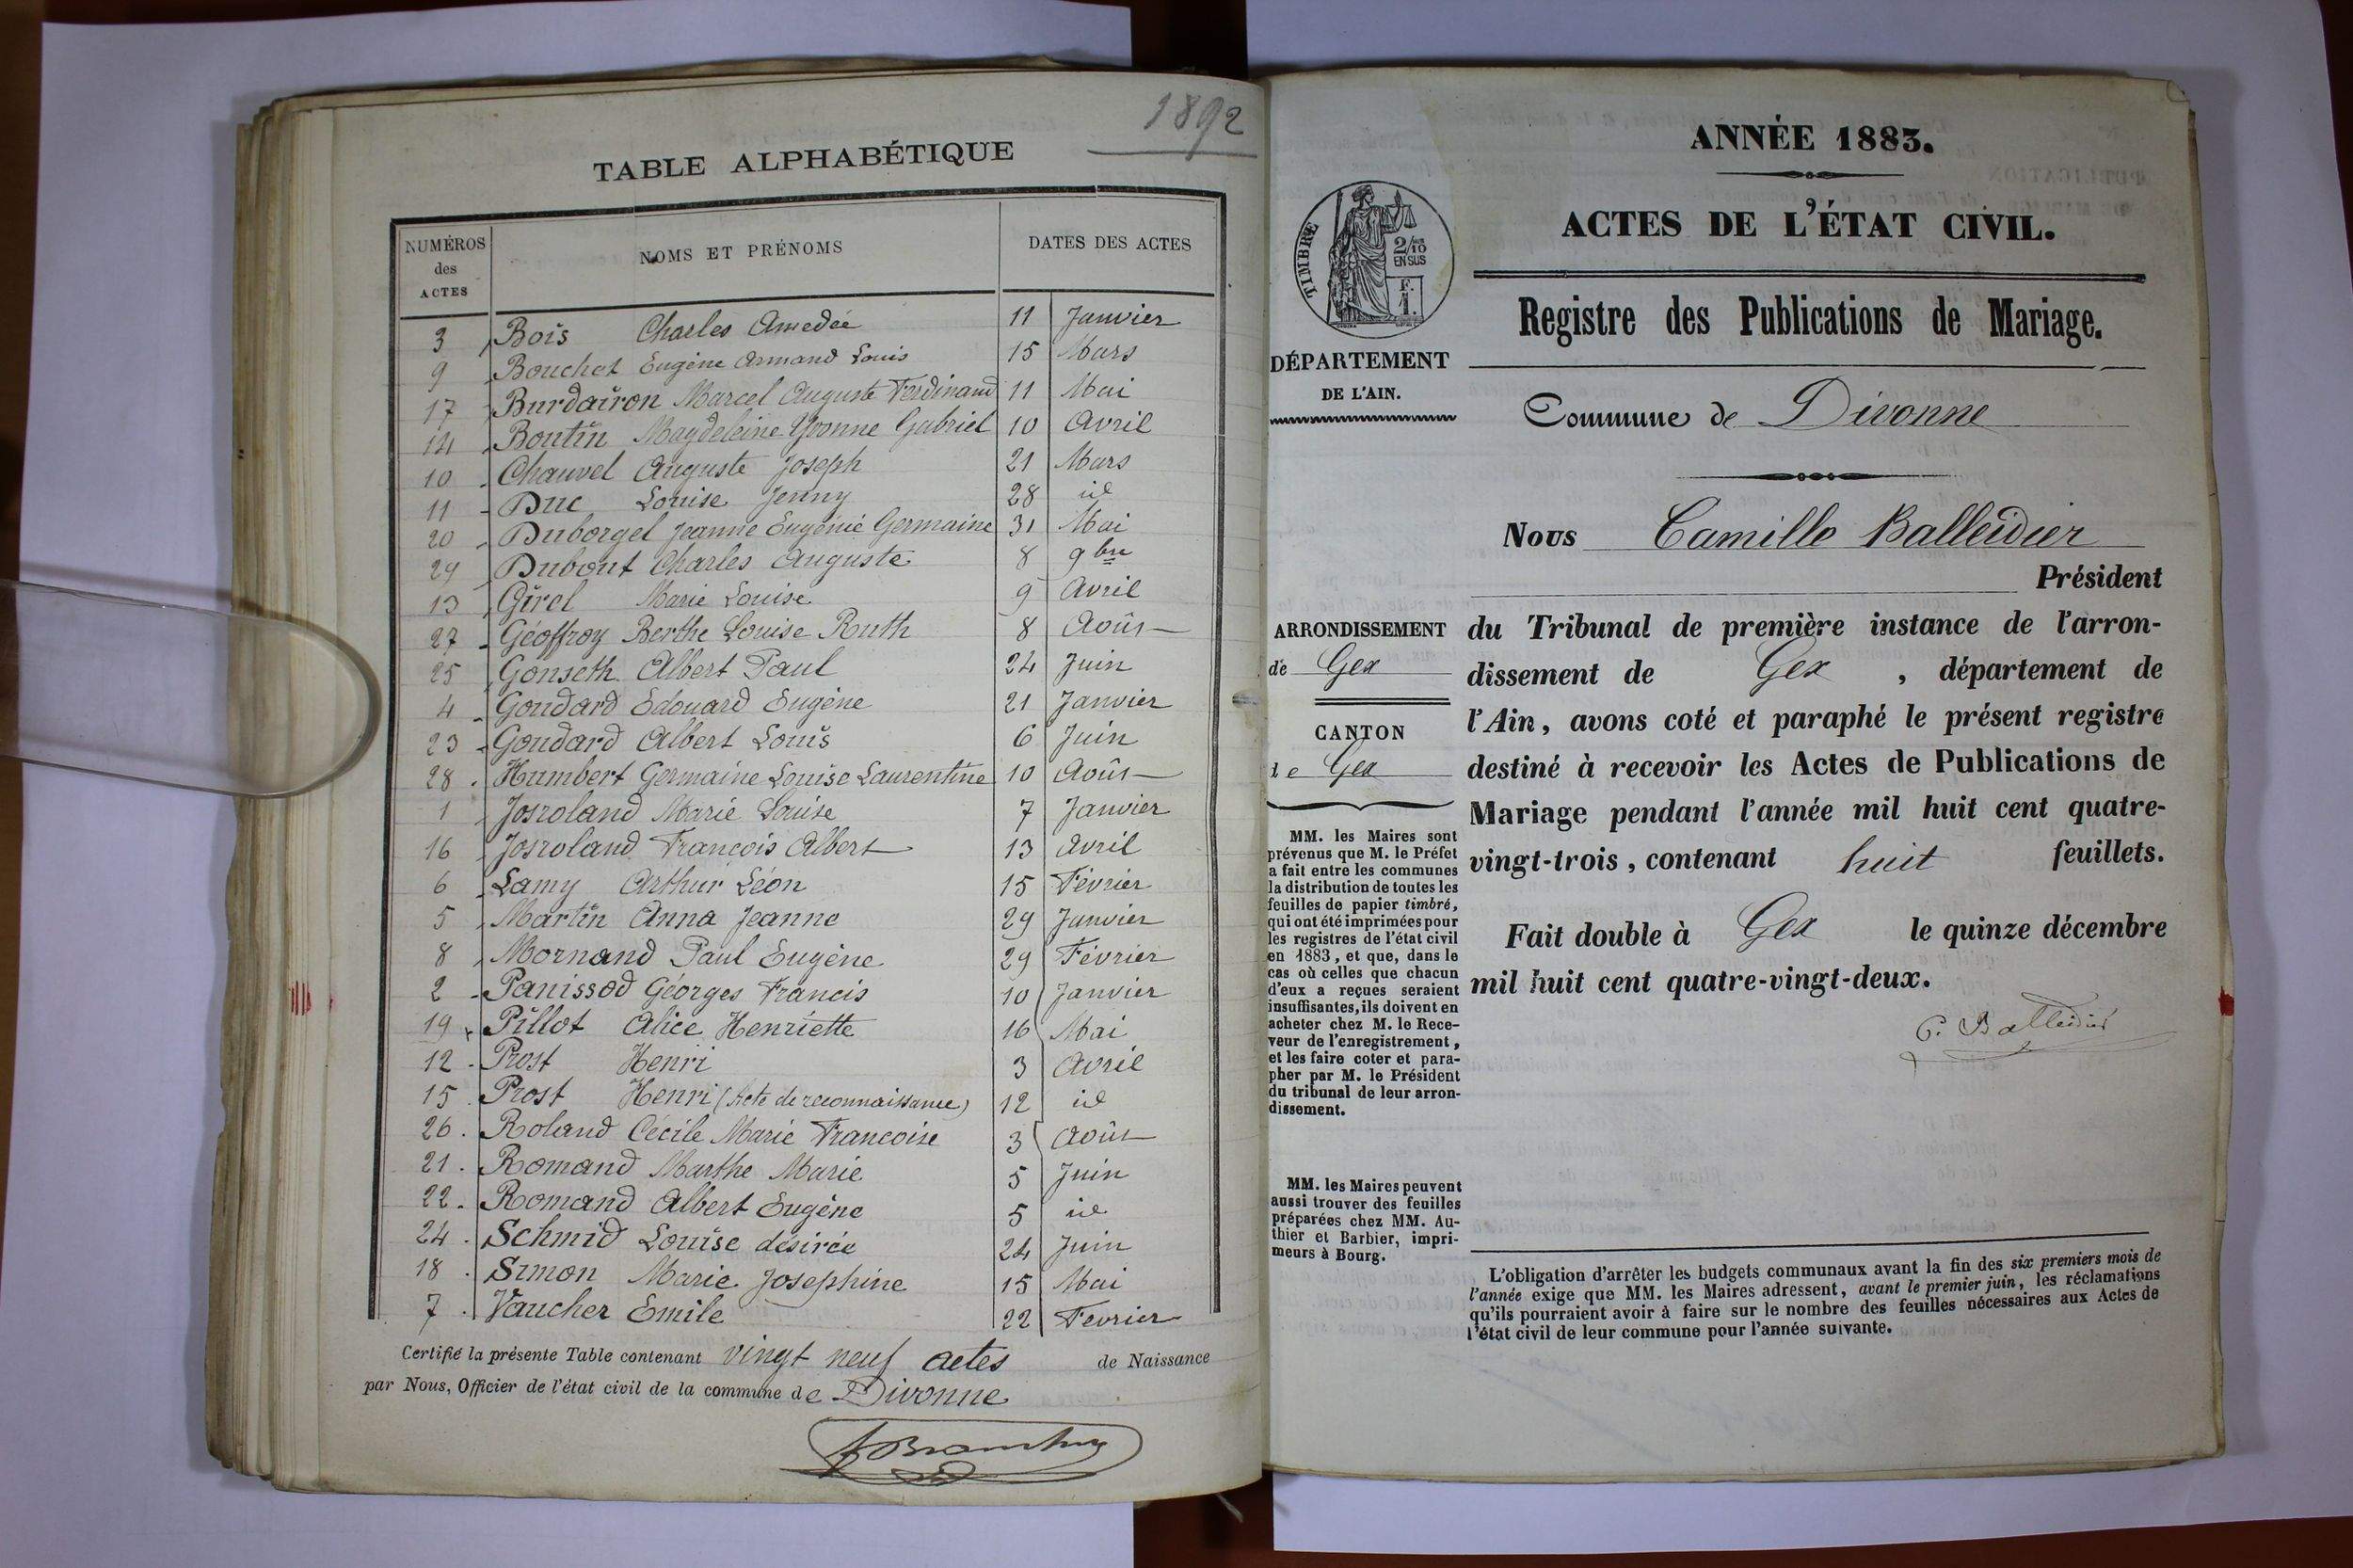 1892
TABLE ALPHABÉTIQUE
NUMÉROS des ACTES NOMS ET PRÉNOMS DATES DES ACTES
3 Bois Charles Amedée 11 Janvier
9 Bouchet Eugène Armand Louis 15 Mars
17 Burdairon Marcel Auguste Ferdinand 11 Mai
14 Boutin Magdeleine Yvonne Gabriel 10 Avril
10 Chauvel Auguste Joseph 21 Mars
11 Duc Louise Jenny 28 id
20 Duborgel Jeanne Eugénie Germaine 31 Mai
29 Dubout Charles Auguste 8 9bre
13 Girel Marie Louise 9 Avril
27 Géoffroy Berthe Louise Ruth 8 Août
25 Gonseth Albert Paul 24 Juin
4 Goudard Edouard Eugène 21 Janvier
23 Goudard Albert Louis 6 Juin
28 Humbert Germaine Louise Laurentine 10 Août
1 Josroland Marie Louise 7 Janvier
16 Josroland François Albert 13 Avril
6 Lamy Arthur Léon 15 Février
5 Martin Anna Jeanne 29 Janvier
8 Mornand Paul Eugène 29 Février
2 Panissod Géorges Francis 10 Janvier
19 Pillot Alice Henriette 16 Mai
12 Prost Henri 3 Avril
15 Prost Henri (Acte de reconnaissance) 12 id
26 Roland Cécile Marie Francoise 3 Août
21 Romand Marthe Marie 5 Juin
22 Romand Albert Eugène 5 id
24 Schmid Louise désirée 24 Juin
18 Simon Marie Josephine 15 Mai
7 Vaucher Emile 22 Fevrier
Certifié la présente Table contenant vingt neuf actes de Naissance
par Nous, Officier de l'état civil de la commune de Divonne
ANNÉE 1883.
ACTES DE L'ÉTAT CIVIL.
Registre des Publications de Mariage.
Commune de Divonne
Nous Camille Balleidier
Président
du Tribunal de première instance de l'arron-
dissement de Gex, département de
l'Ain, avons coté et paraphé le présent registre
destiné à recevoir les Actes de Publications de
Mariage pendant l'année mil huit cent quatre-
vingt-trois, contenant huit feuillets.
Fait double à Gex le quinze décembre
mil huit cent quatre-vingt-deux.
C. Balleidier
L'obligation d'arrêter les budgets communaux avant la fin des six premiers mois de
l'année exige que MM. les Maires adressent, avant le premier juin, les réclamations
qu'ils pourraient avoir à faire sur le nombre des feuilles nécessaires aux Actes de
l'état civil de leur commune pour l'année suivante.
TIMBRE
2/10
EN SUS
F.
1.
DÉPARTEMENT
DE L'AIN.
ARRONDISSEMENT
de Gex
CANTON
de Gex
MM. les Maires sont
prévenus que M. le Préfet
a fait entre les communes
la distribution de toutes les
feuilles de papier timbré,
qui ont été imprimées pour
les registres de l'état civil
en 1883, et que, dans le
cas où celles que chacun
d'eux a reçues seraient
insuffisantes, ils doivent en
acheter chez M. le Rece-
veur de l'enregistrement,
et les faire coter et para-
pher par M. le Président
du tribunal de leur arron-
dissement.
MM. les Maires peuvent
aussi trouver des feuilles
préparées chez MM. Au-
thier et Barbier, impri-
meurs à Bourg.